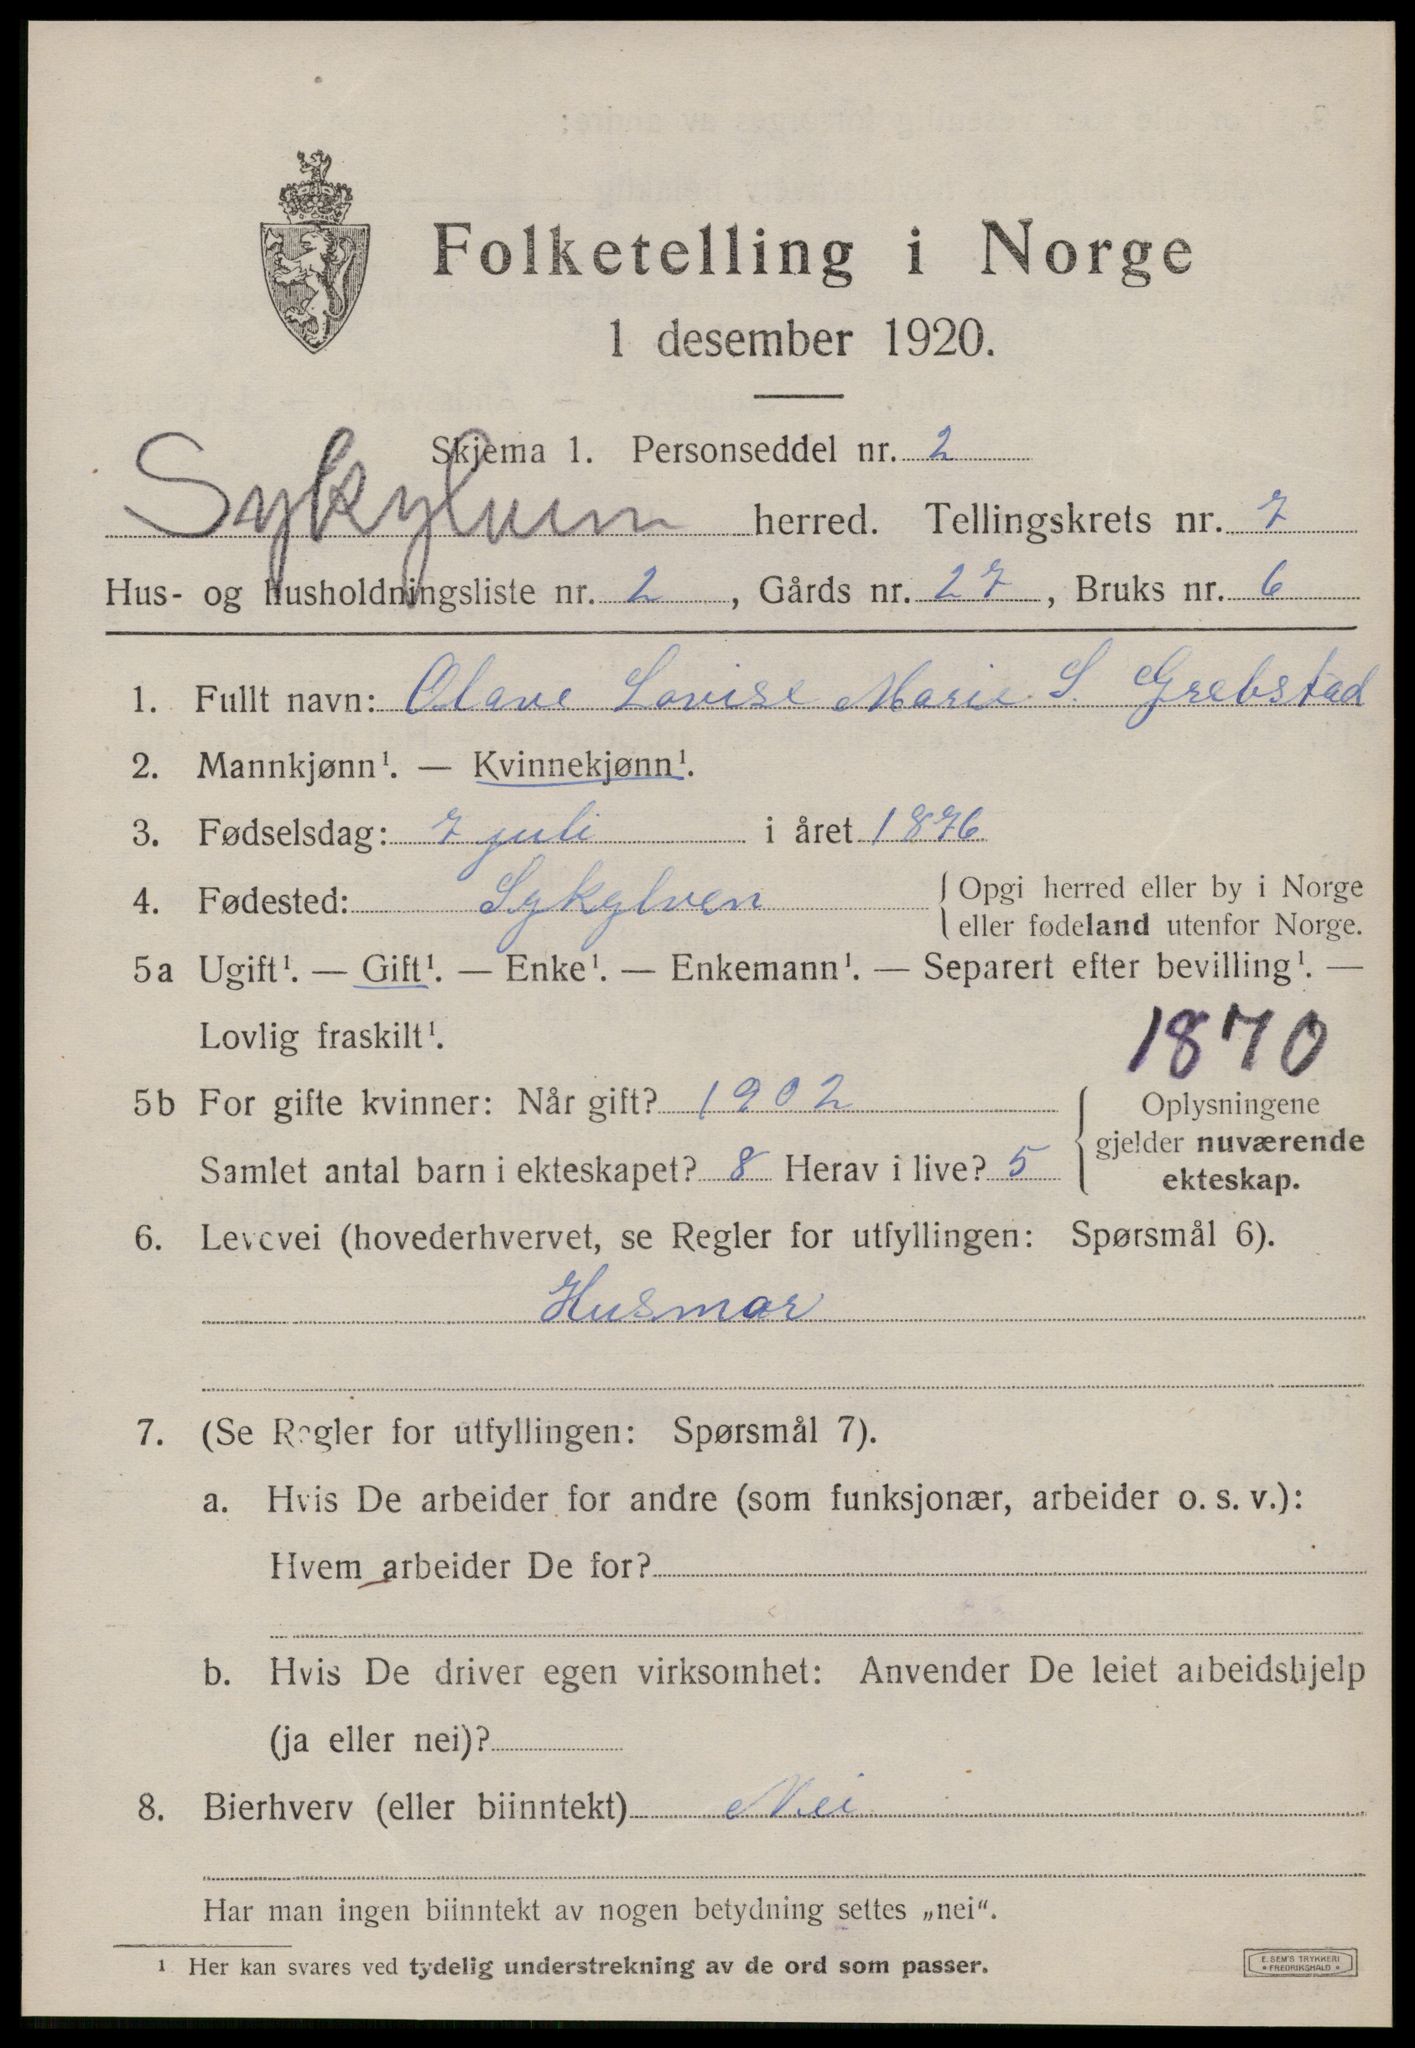 Folketelling i Norge
1 desember 1920.
Skjema 1. Personseddel nr. 2
Sykylven herred. Tellingskrets nr. 7
Hus- og husholdningsliste nr. 2, Gårds nr. 27, Bruks nr. 6
1. Fullt navn: Olave Lovise Marie S. Grebstad
2. Mannkjønn¹. — Kvinnekjønn¹.
3. Fødselsdag: 7 juli i året 1876
4. Fødested: Sykylven { Opgi herred eller by i Norge
eller fødeland utenfor Norge.
5a Ugift¹. — Gift¹. — Enke¹. — Enkemann¹. — Separert efter bevilling¹. —
Lovlig fraskilt¹.
1870
5b For gifte kvinner: Når gift? 1902
Samlet antal barn i ekteskapet? 8 Herav i live? 5
{ Oplysningene
gjelder nuværende
ekteskap.
6. Levevei (hovederhvervet, se Regler for utfyllingen: Spørsmål 6).
Husmor
7. (Se Regler for utfyllingen: Spørsmål 7).
a. Hvis De arbeider for andre (som funksjonær, arbeider o. s. v.):
Hvem arbeider De for?
b. Hvis De driver egen virksomhet: Anvender De leiet arbeidshjelp
(ja eller nei)?
8. Bierhverv (eller biinntekt) Nei
Har man ingen biinntekt av nogen betydning settes „nei“.
¹ Her kan svares ved tydelig understrekning av de ord som passer.
E. SEM'S TRYKKERI
FREDRIKSHALD